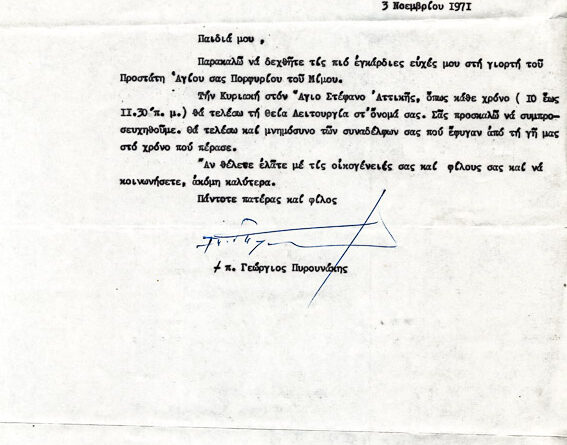 3 Νοεμβρίου 1971
Παιδιά μου ,
Παρακαλῶ νά δεχθῆτε τίς πιό ἐγκάρδιες εὐχές μου στή γιορτή τοῦ
Προστάτη Ἁγίου σας Πορφυρίου τοῦ Μίμου.
Τήν Κυριακή στόν Ἅγιο Στέφανο Ἀττικῆς, ὅπως κάθε χρόνο ( 10 ἕως
11.30 π. μ.) θά τελέσω τή θεία Λειτουργία στ'ὄνομά σας. Σᾶς προσκαλῶ νά συμπρο-
σευχηθοῦμε. Θά τελέσω καί μνημόσυνο τῶν συναδέλφων σας πού ἔφυγαν ἀπό τή γῆ μας
στό χρόνο πού πέρασε.
Ἄν θέλετε ἐλᾶτε μέ τίς οἰκογένειές σας καί φίλους σας καί νά
κοινωνήσετε, ἀκόμη καλύτερα.
Πάντοτε πατέρας καί φίλος
π. Γεώργιος Πυρουνάκης